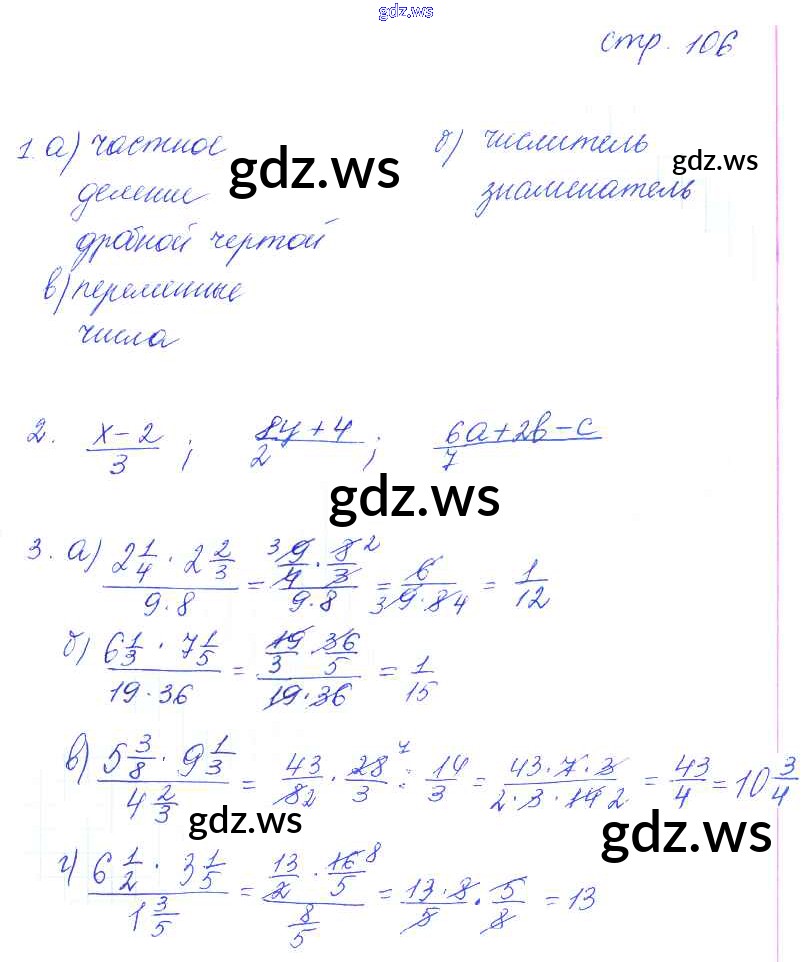 gdz.ws
стр. 106
1. а) частное
деление
дробной чертой
б) числитель
знаменатель
в) переменные
числа
gdz.ws
gdz.ws
2. (x-2)/3 ; (8y+4)/2 ; (6a+2b-c)/7
gdz.ws
3. а) (2 1/4 · 2 2/3)/(9·8) = (9/4 · 8/3)/(9·8) = 6/(9·8) = 1/12
б) (6 1/3 · 7 1/5)/(19·36) = (19/3 · 36/5)/(19·36) = 1/15
в) (5 3/8 · 9 1/3)/(4 2/3) = 43/8 · 28/3 : 14/3 = (43·7·3)/(2·3·14 2) = 43/4 = 10 3/4
gdz.ws
gdz.ws
г) (6 1/2 · 3 1/5)/(1 3/5) = (13/2 · 16/5)/(8/5) = (13·8)/5 · 5/8 = 13